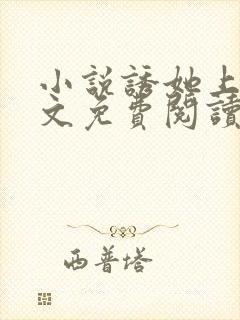 小說誘她上
文免費閱讀
西普塔